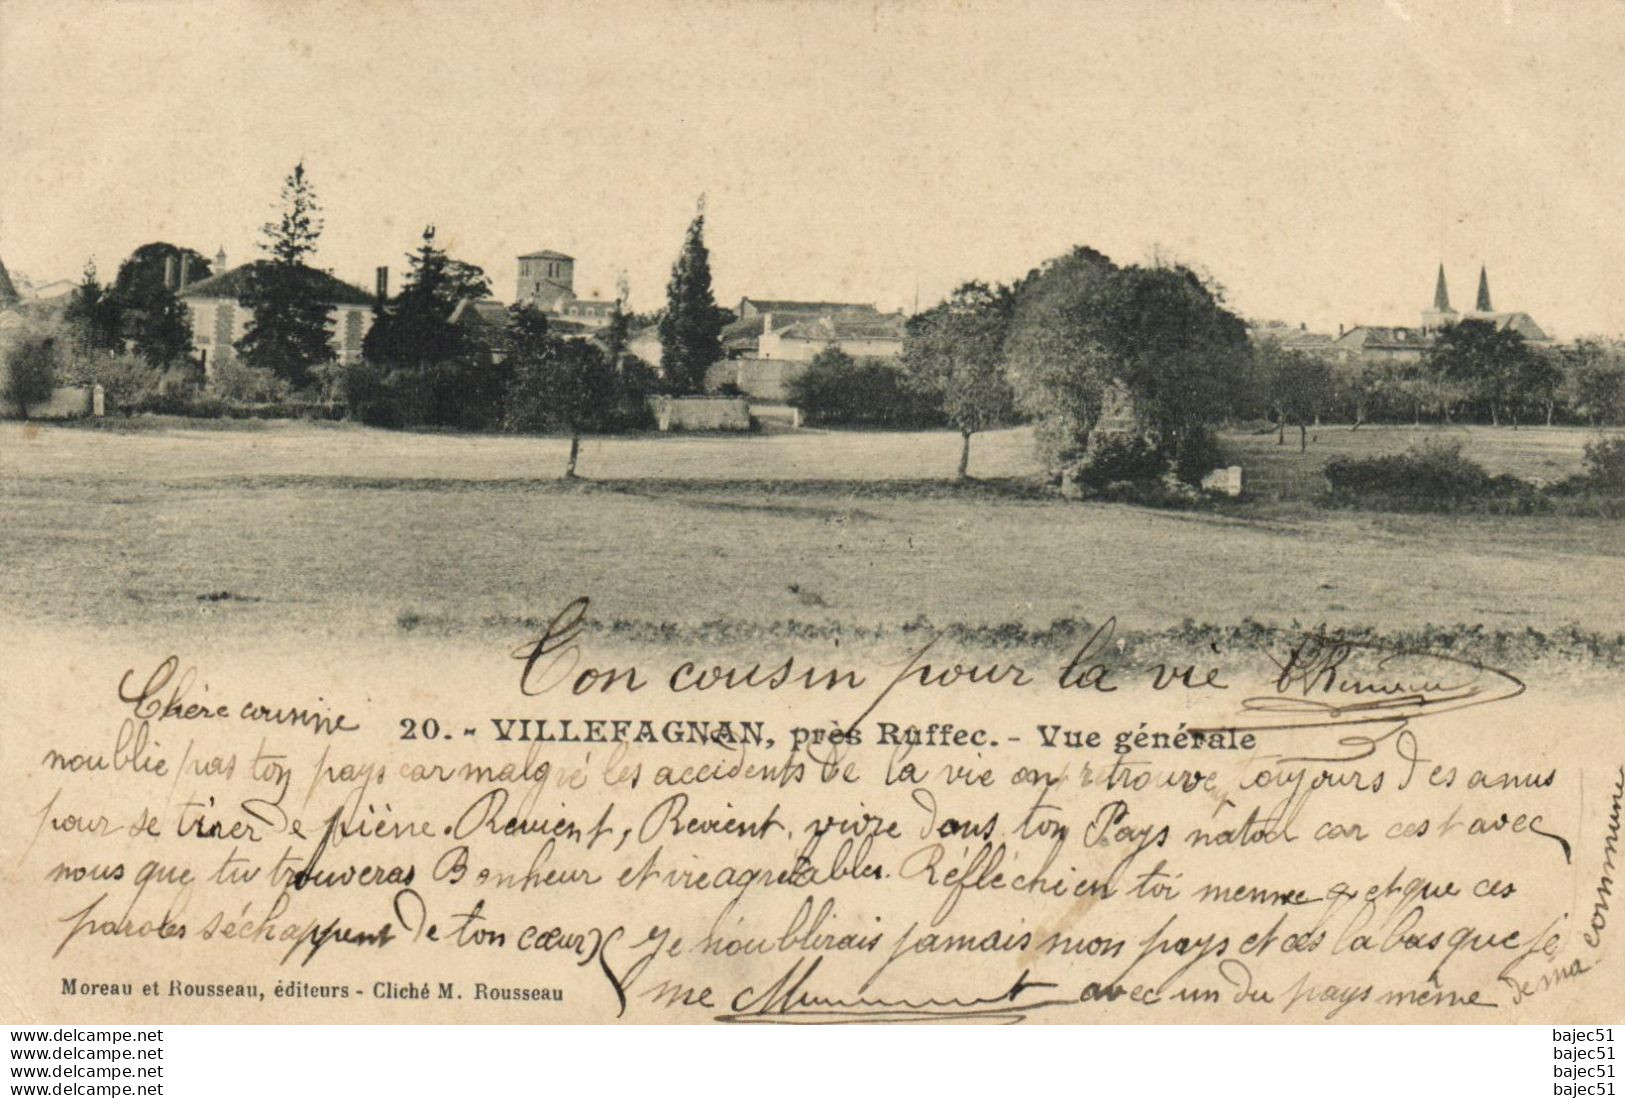 Ton cousin pour la vie
Chère cousine
20. - VILLEFAGNAN, près Ruffec. - Vue générale
noublie pas ton pays car malgré les accidents de la vie on retrouve toujours des amis
pour se tirer de pième. Revient, Revient, vivre dans ton Pays natal car cest avec
nous que tu trouveras Bonheur et vie agréables. Réfléchi en toi menne & et que ces
paroles séchappent de ton cœur) ( Je n'oublirais jamais mon pays et cès la bas que je
me avec un du pays même de ma commune
Moreau et Rousseau, éditeurs - Cliché M. Rousseau
www.delcampe.net bajec51
www.delcampe.net bajec51
www.delcampe.net bajec51
www.delcampe.net bajec51